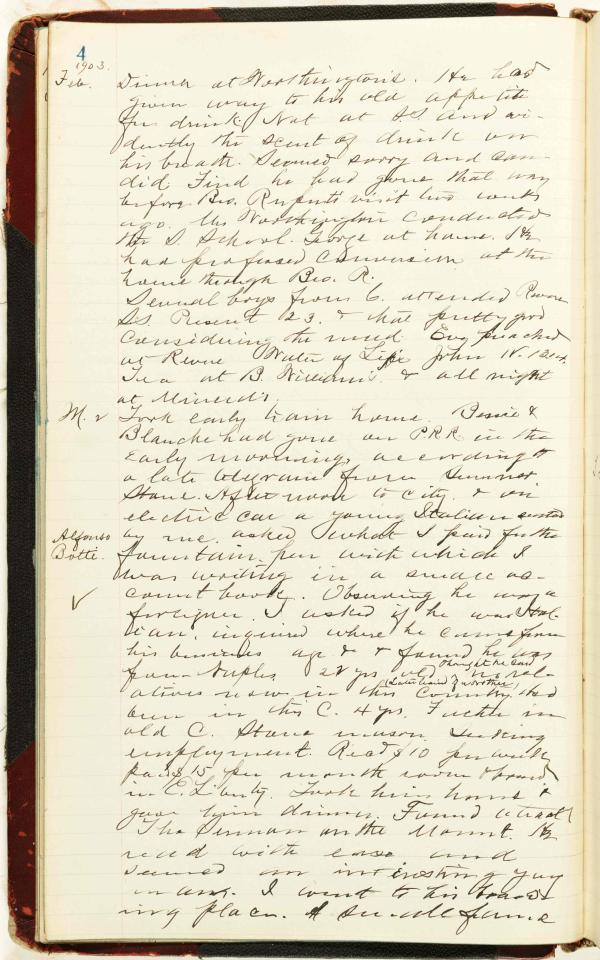 4
1903.
Feb. Dinner at Worthington's. He had
given way to his old appetite
for drink. Not at SS and evi-
dently the scent of drink on
his breath. Seemed sorry and can-
did. Find he had gone that way
before Bro. Rupert's visit two weeks
ago. Mrs Worthington conducted
the S. School. George at home. He
had professed conversion at the
home through Bro. R.
Several boys from 6. attended Revere
SS. Present 23. & that pretty good
considering the mud. Evg preached
at Revere Water of Life John IV. 1214.
Tea at B. Williams. & all night
at Minerd's.
M. 2 Took early train home. Bessie &
Blanche had gone on P.R.R. in the
early morning, according to
a late telegram from Sumner
Stone. Afternoon to city & on
electric car a young Italian seated
Alfonso by me, asked what I paid for the
Botti. fountain pen with which I
was writing in a small ac-
✓ count book. Observing he was a
foreigner, I asked if he was Ital-
ian, inquired where he came from
his business age &c & found he was
from Naples 22 yrs old. no rel-
thought he said
atives now in this Country. Had
(Later I said 3 brothers)
been in this C. 4 yrs. Father in
old C. Stone mason. Seeking
employment. Recd $10 per week
paid $15 per month room & board
in E. Liberty. Took him home &
gave him dinner. Found a tract
The Sermon on the Mount. He
read with ease and
seemed an interesting young
man. I went to his board-
ing place. A small frame